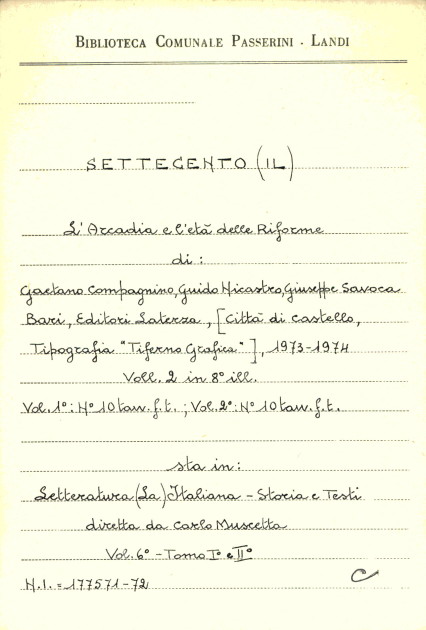 BIBLIOTECA COMUNALE PASSERINI - LANDI
SETTECENTO (IL)
L'Arcadia e l'età delle Riforme
di:
Gaetano Compagnino, Guido Nicastro, Giuseppe Savoca
Bari, Editori Laterza, [Città di Castello,
Tipografia "Tiferno Grafica"], 1973-1974
Voll. 2 in 8° ill.
Vol. 1°: N° 10 tav. f.t. ; Vol. 2°: N° 10 tav. f.t.
sta in:
Letteratura (La) Italiana - Storia e Testi
diretta da Carlo Muscetta
Vol. 6° - Tomo I° e II°
N.I. = 177571-72
C